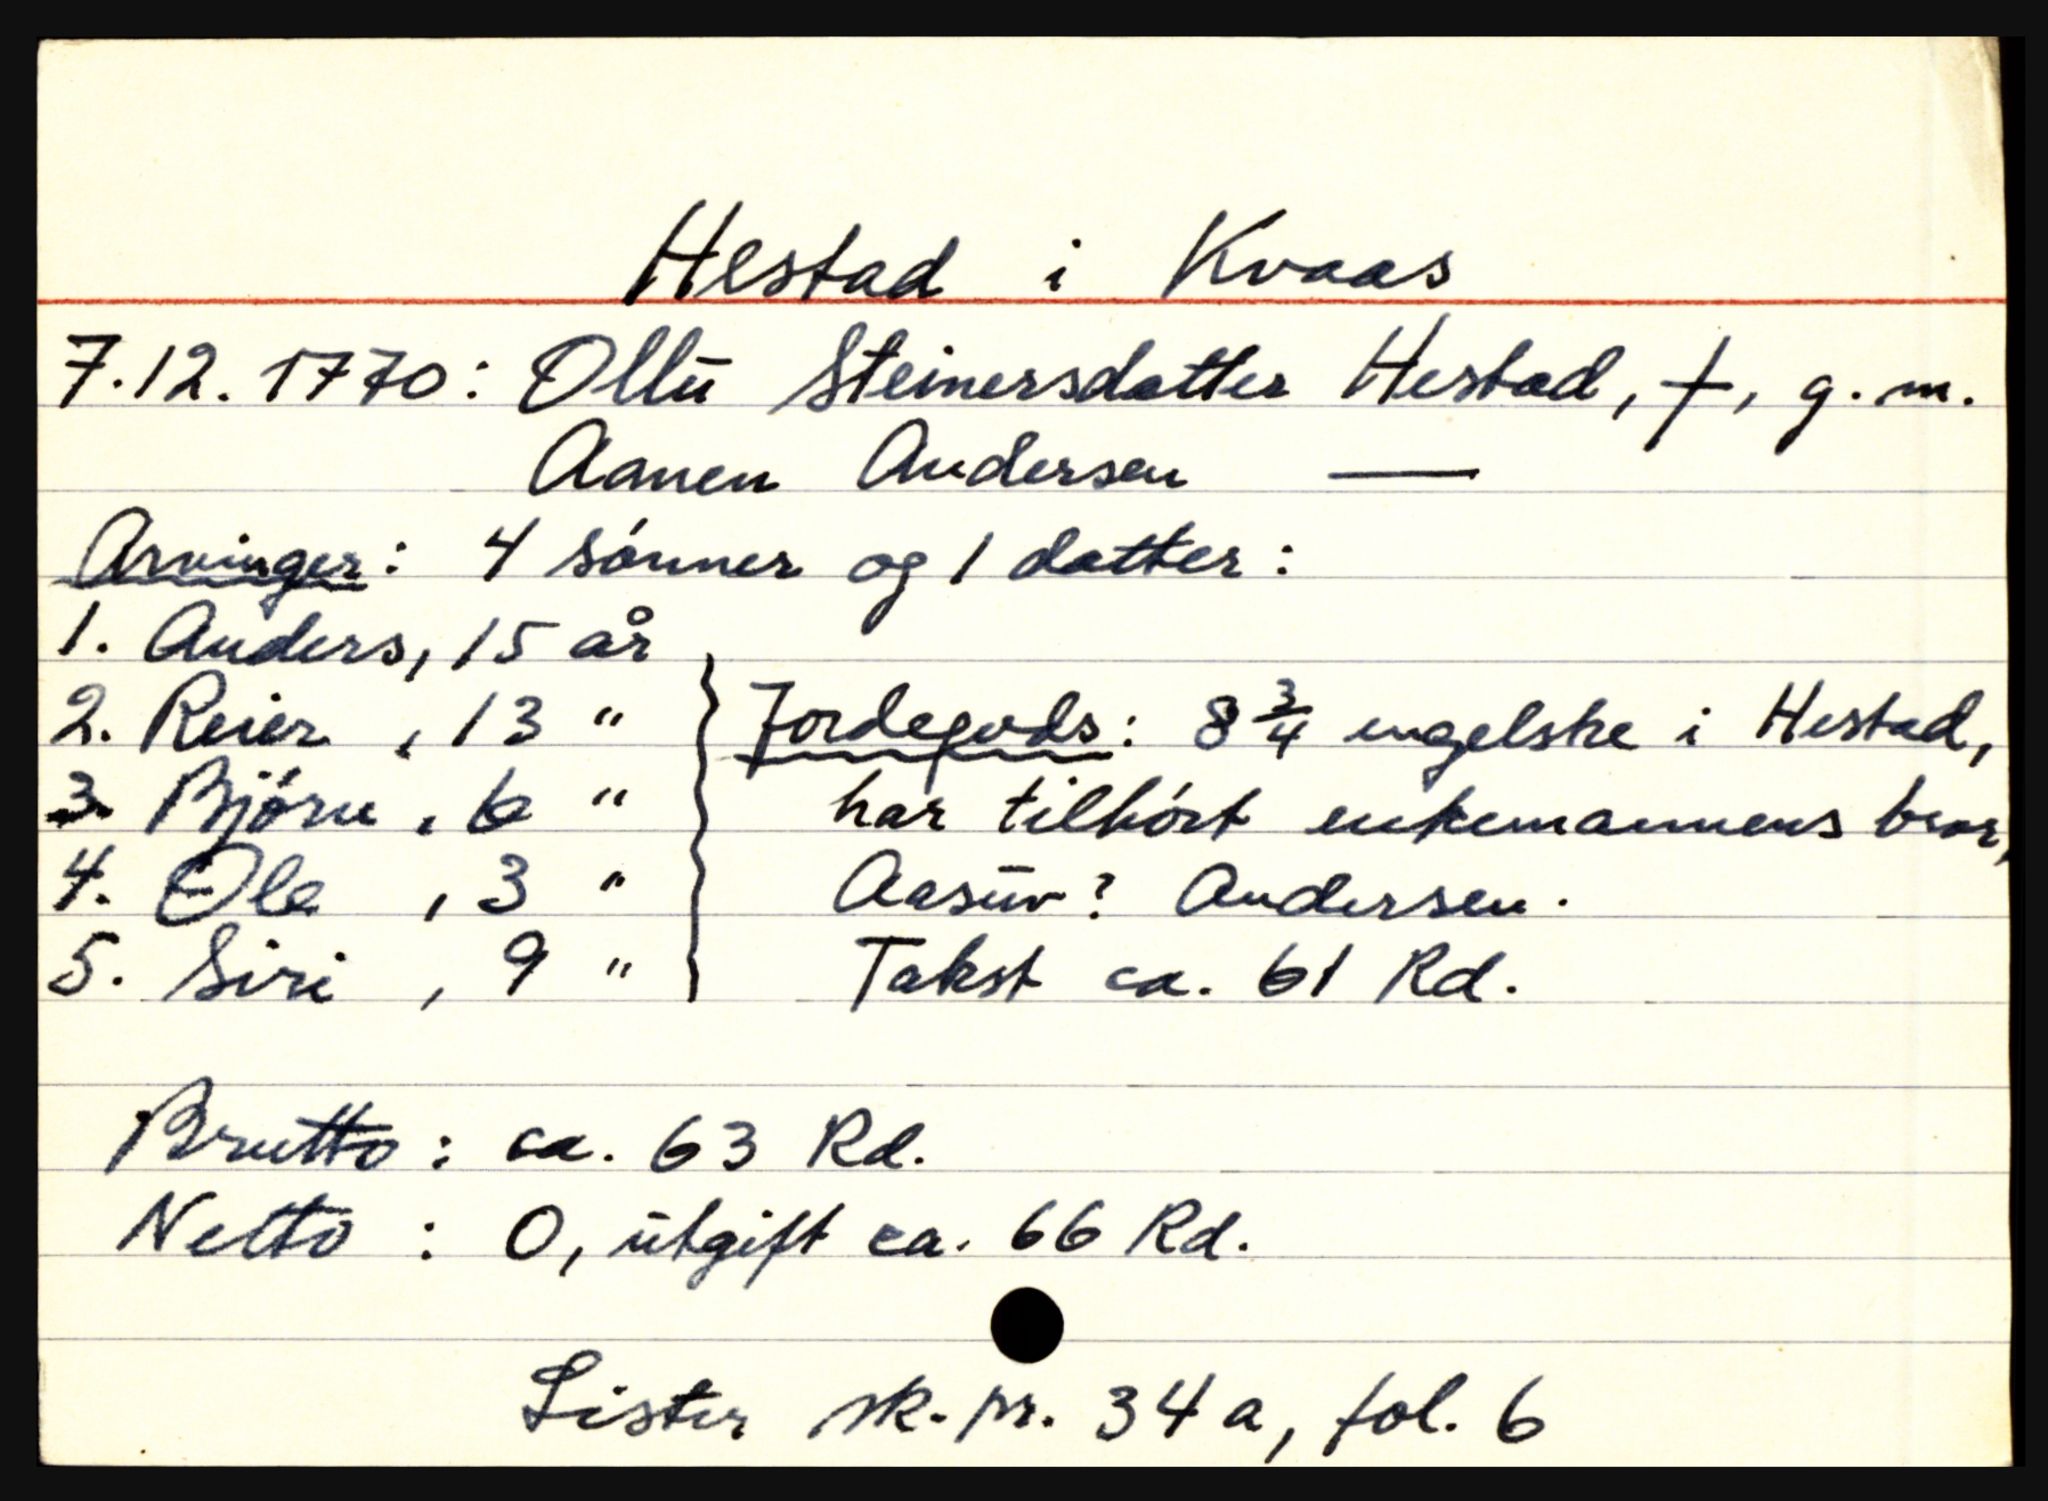 Hestad i Kvaas
7.12.1770: Ollū Steinersdatter Hestad, †, g. m.
Aanen Andersen —
Arvinger: 4 sónner og 1 datter:
1. Anders, 15 år
2. Reier, 13 "
3. Bjórn, 6 "
4. Ole, 3 "
5. Siri, 9 "
Jordegods: 8 3/4 engelske i Hestad,
har tilhórt enkemannens bror,
Aasūv? Andersen.
Takst ca. 61 Rd.
Brutto: ca. 63 Rd.
Netto: 0, ūtgift ca. 66 Rd.
Lister sk. pr. 34a, fol. 6